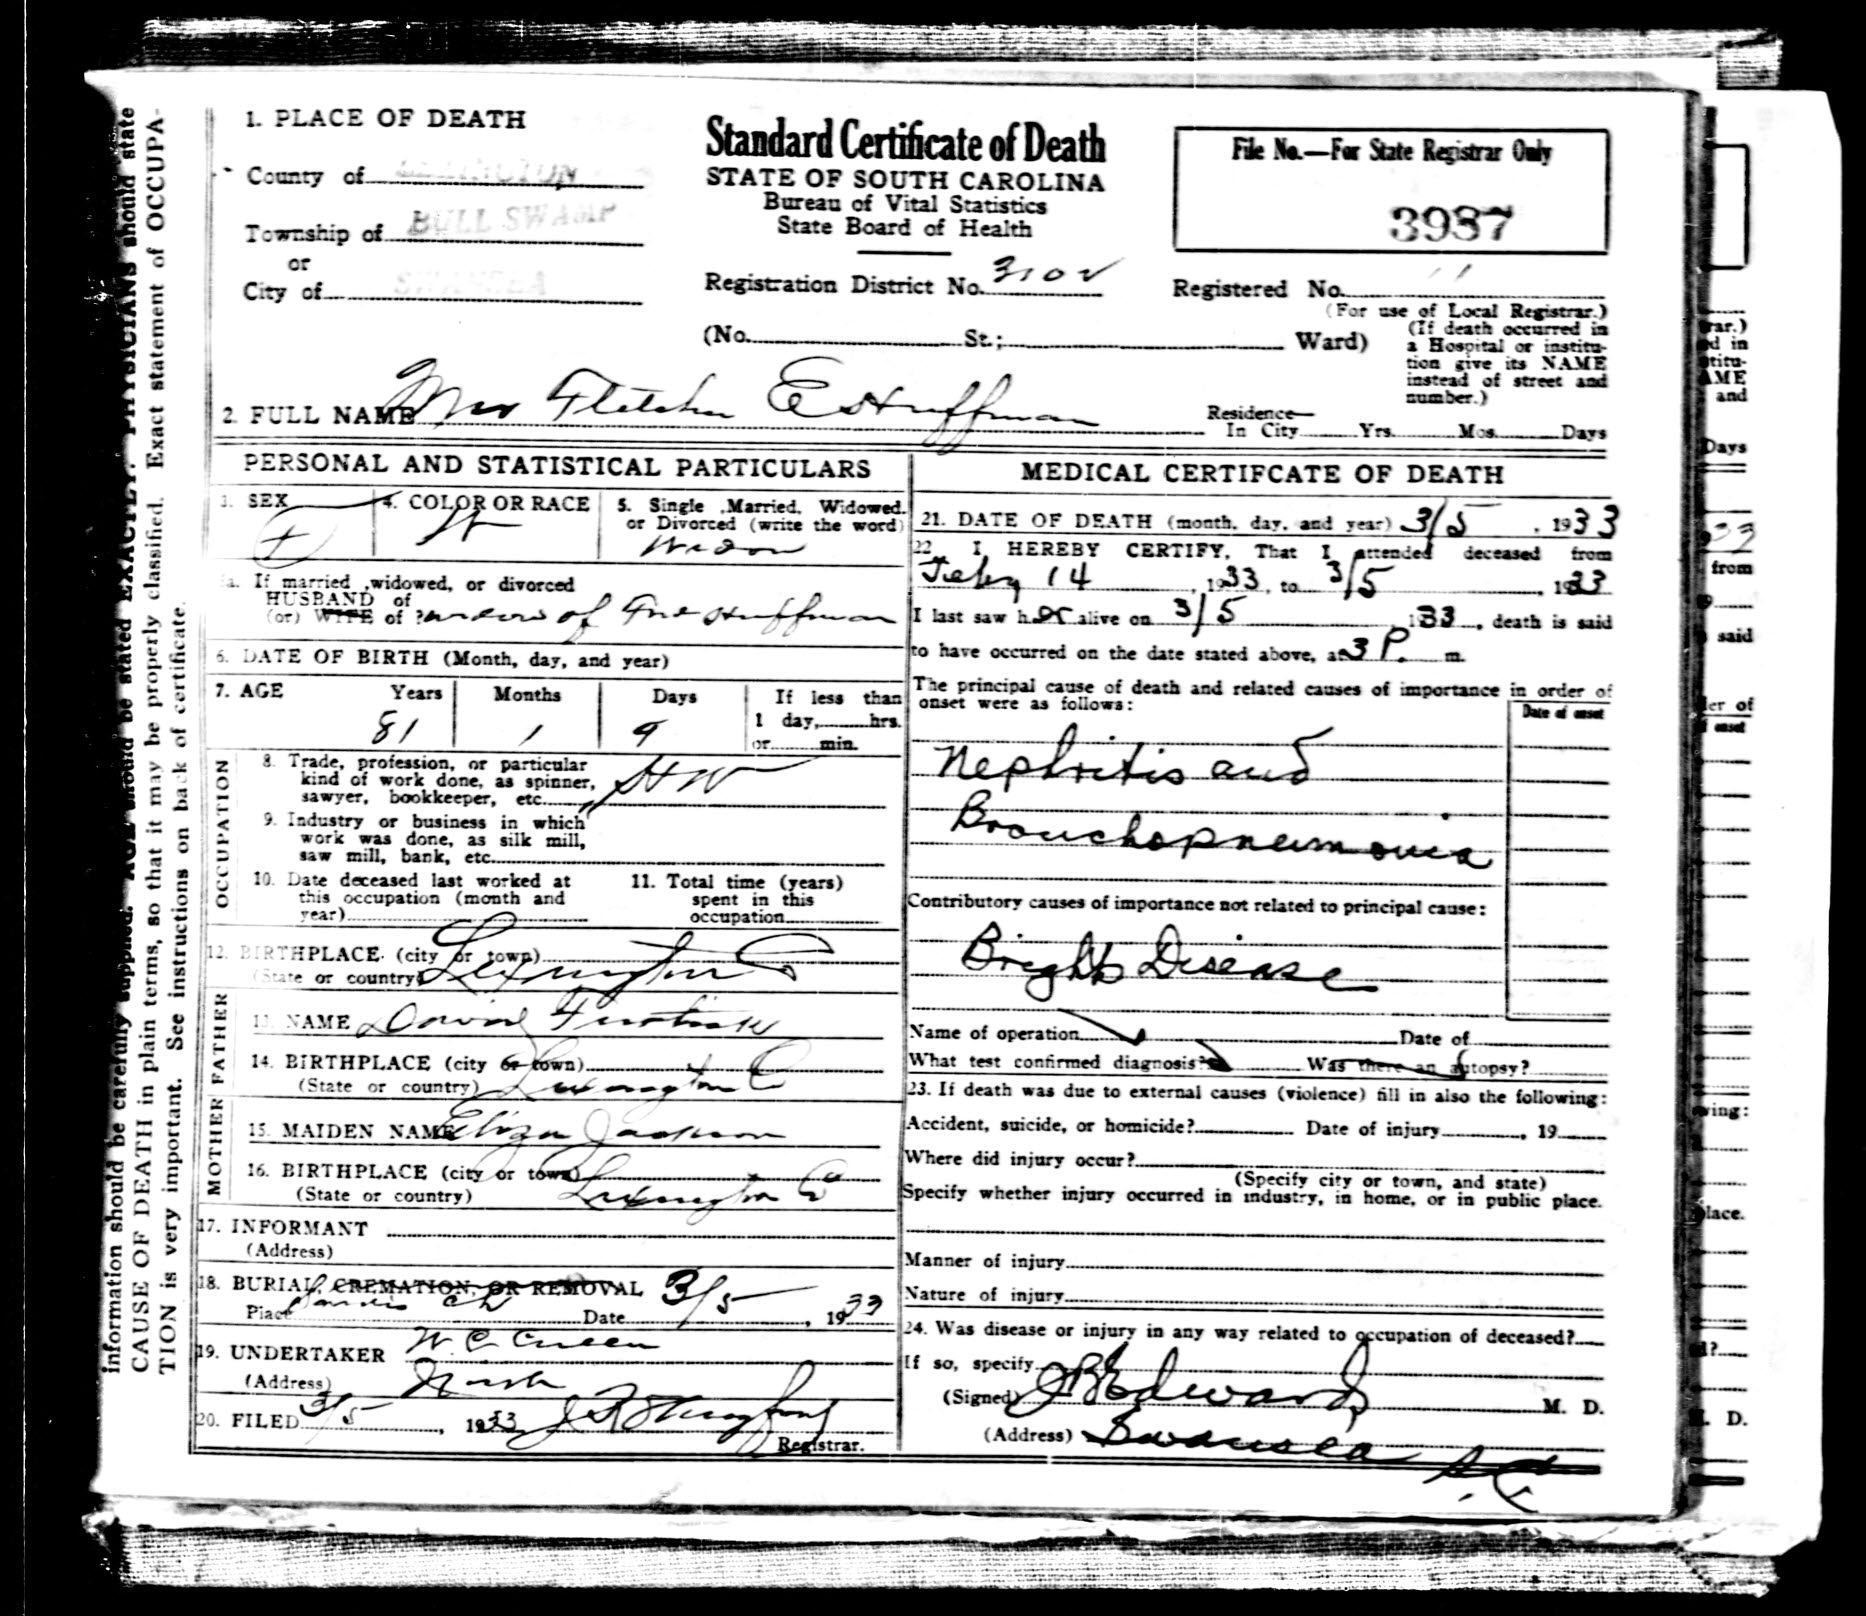 1. PLACE OF DEATH
County of LEXINGTON
Township of BULL SWAMP
or
City of SWANSEA
Standard Certificate of Death
STATE OF SOUTH CAROLINA
Bureau of Vital Statistics
State Board of Health
Registration District No. 3102
(No. St.; Ward)
File No.—For State Registrar Only
3987
Registered No. 11
(For use of Local Registrar.)
(If death occurred in
a Hospital or institu-
tion give its NAME
instead of street and
number.)
2. FULL NAME Mrs Fletcher E Huffman
Residence—
In City Yrs. Mos. Days
PERSONAL AND STATISTICAL PARTICULARS
3. SEX F
4. COLOR OR RACE W
5. Single, Married, Widowed,
or Divorced (write the word)
Widow
5a. If married, widowed, or divorced
HUSBAND of
(or) WIFE of widow of Huffman
6. DATE OF BIRTH (Month, day, and year)
7. AGE Years Months Days If less than
81 1 9 1 day, hrs.
or min.
OCCUPATION
8. Trade, profession, or particular
kind of work done, as spinner,
sawyer, bookkeeper, etc. HW
9. Industry or business in which
work was done, as silk mill,
saw mill, bank, etc.
10. Date deceased last worked at
this occupation (month and
year)
11. Total time (years)
spent in this
occupation
12. BIRTHPLACE (city or town)
(State or country) Lexington Co
FATHER
13. NAME David
14. BIRTHPLACE (city or town)
(State or country) Lexington Co
MOTHER
15. MAIDEN NAME Eliza Jackson
16. BIRTHPLACE (city or town)
(State or country) Lexington Co
17. INFORMANT
(Address)
18. BURIAL, CREMATION, OR REMOVAL
Place Sardis Ch Date 3/5, 1933
19. UNDERTAKER W C
(Address)
20. FILED 3/5, 1933
Registrar.
MEDICAL CERTIFCATE OF DEATH
21. DATE OF DEATH (month, day, and year) 3/5, 1933
22. I HEREBY CERTIFY, That I attended deceased from
Feby 14, 1933, to 3/5, 1933
I last saw her alive on 3/5, 1933, death is said
to have occurred on the date stated above, at 3 P. m.
The principal cause of death and related causes of importance in order of
onset were as follows:
Date of onset
Nephritis and
Bronchopneumonia
Contributory causes of importance not related to principal cause:
Brights Disease
Name of operation Date of
What test confirmed diagnosis? Was there an autopsy?
23. If death was due to external causes (violence) fill in also the following:
Accident, suicide, or homicide? Date of injury , 19
Where did injury occur?
(Specify city or town, and state)
Specify whether injury occurred in industry, in home, or in public place.
Manner of injury
Nature of injury
24. Was disease or injury in any way related to occupation of deceased?
If so, specify
(Signed) J B Edwards M. D.
(Address) Swansea S.C.
information should be carefully supplied. AGE should be stated EXACTLY. PHYSICIANS should state
CAUSE OF DEATH in plain terms, so that it may be properly classified. Exact statement of OCCUPA-
TION is very important. See instructions on back of certificate.